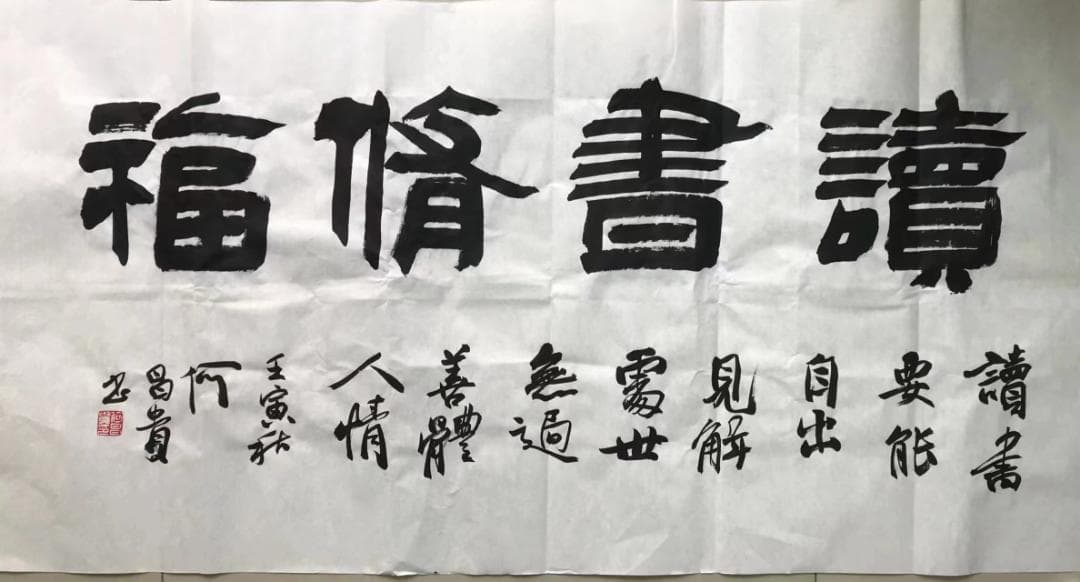 讀書脩福
讀書
要能
自出
見解
處世
無過
善體
人情
壬寅秋
何
昌貴
书